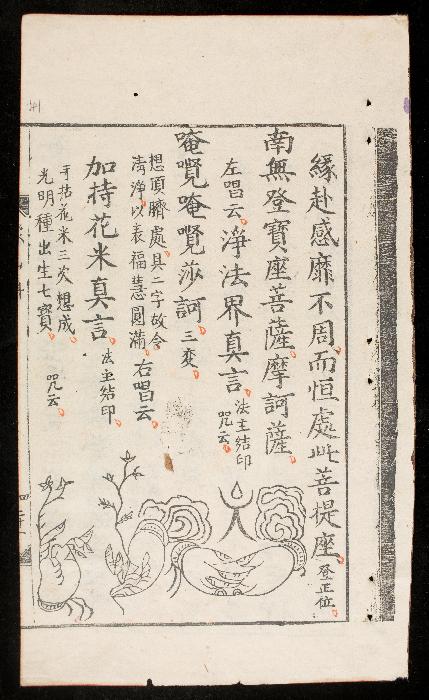 緣赴感靡不周而恒處此菩提座登正位
南無登寶座菩薩摩訶薩
左唱云淨法界真言法主結印咒云
唵㘕唵㘕莎訶三變
想頂臍處具二字故令
清淨以表福慧圓滿右唱云
加持花米真言法主結印
手拈花米三次想成
光明種出生七寶咒云